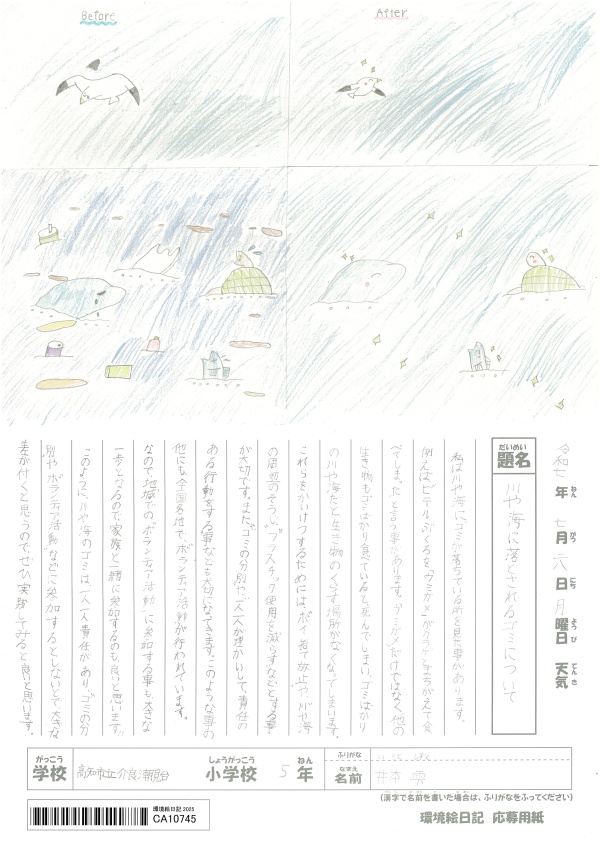 Before
After
令和七年七月六日月曜日天気
ねん
がつ
にち
ようび
てんき
だいめい
題名
川や海に落とされるゴミについて
私は川や海にゴミが落ちている所を見た事があります。
例えば、ビニールぶくろを、ウミガメがクラゲとまちがえて食
べてしまったと言う事があります。ウミガメだけではなく、他の
生き物もゴミばかり食べていると死んでしまい、ゴミばかり
の川や海だと、生き物のくらす場所がなくなってしまいます。
これらをかいけつするためには、ポイ捨て放止や、川や海
の周辺のそうじ、プラスチック使用を減らすなどとする事
が大切です。また、ゴミの分別や、一人一人が理かいして責任の
ある行動をする事なども大切になってきます。このような事の
他にも全国各地で、ボランティア活動が行われています。
なので、地域でのボランティア活動に参加する事も大きな
一歩となるので、家族と一緒に参加するのも良いと思います。
このように、川や海のゴミは、一人一人責任があり、ゴミの分
別やボランティア活動などに参加するとしないとで大きな
差が付くと思うので、ぜひ実践してみると良いと思います。
がっこう
学校
高知市立介良潮見台
しょうがっこう
小学校
5
ねん
年
ふりがな
なまえ
名前
井本 雫
(漢字で名前を書いた場合は、ふりがなをふってください)
環境絵日記 2025
CA10745
環境絵日記 応募用紙